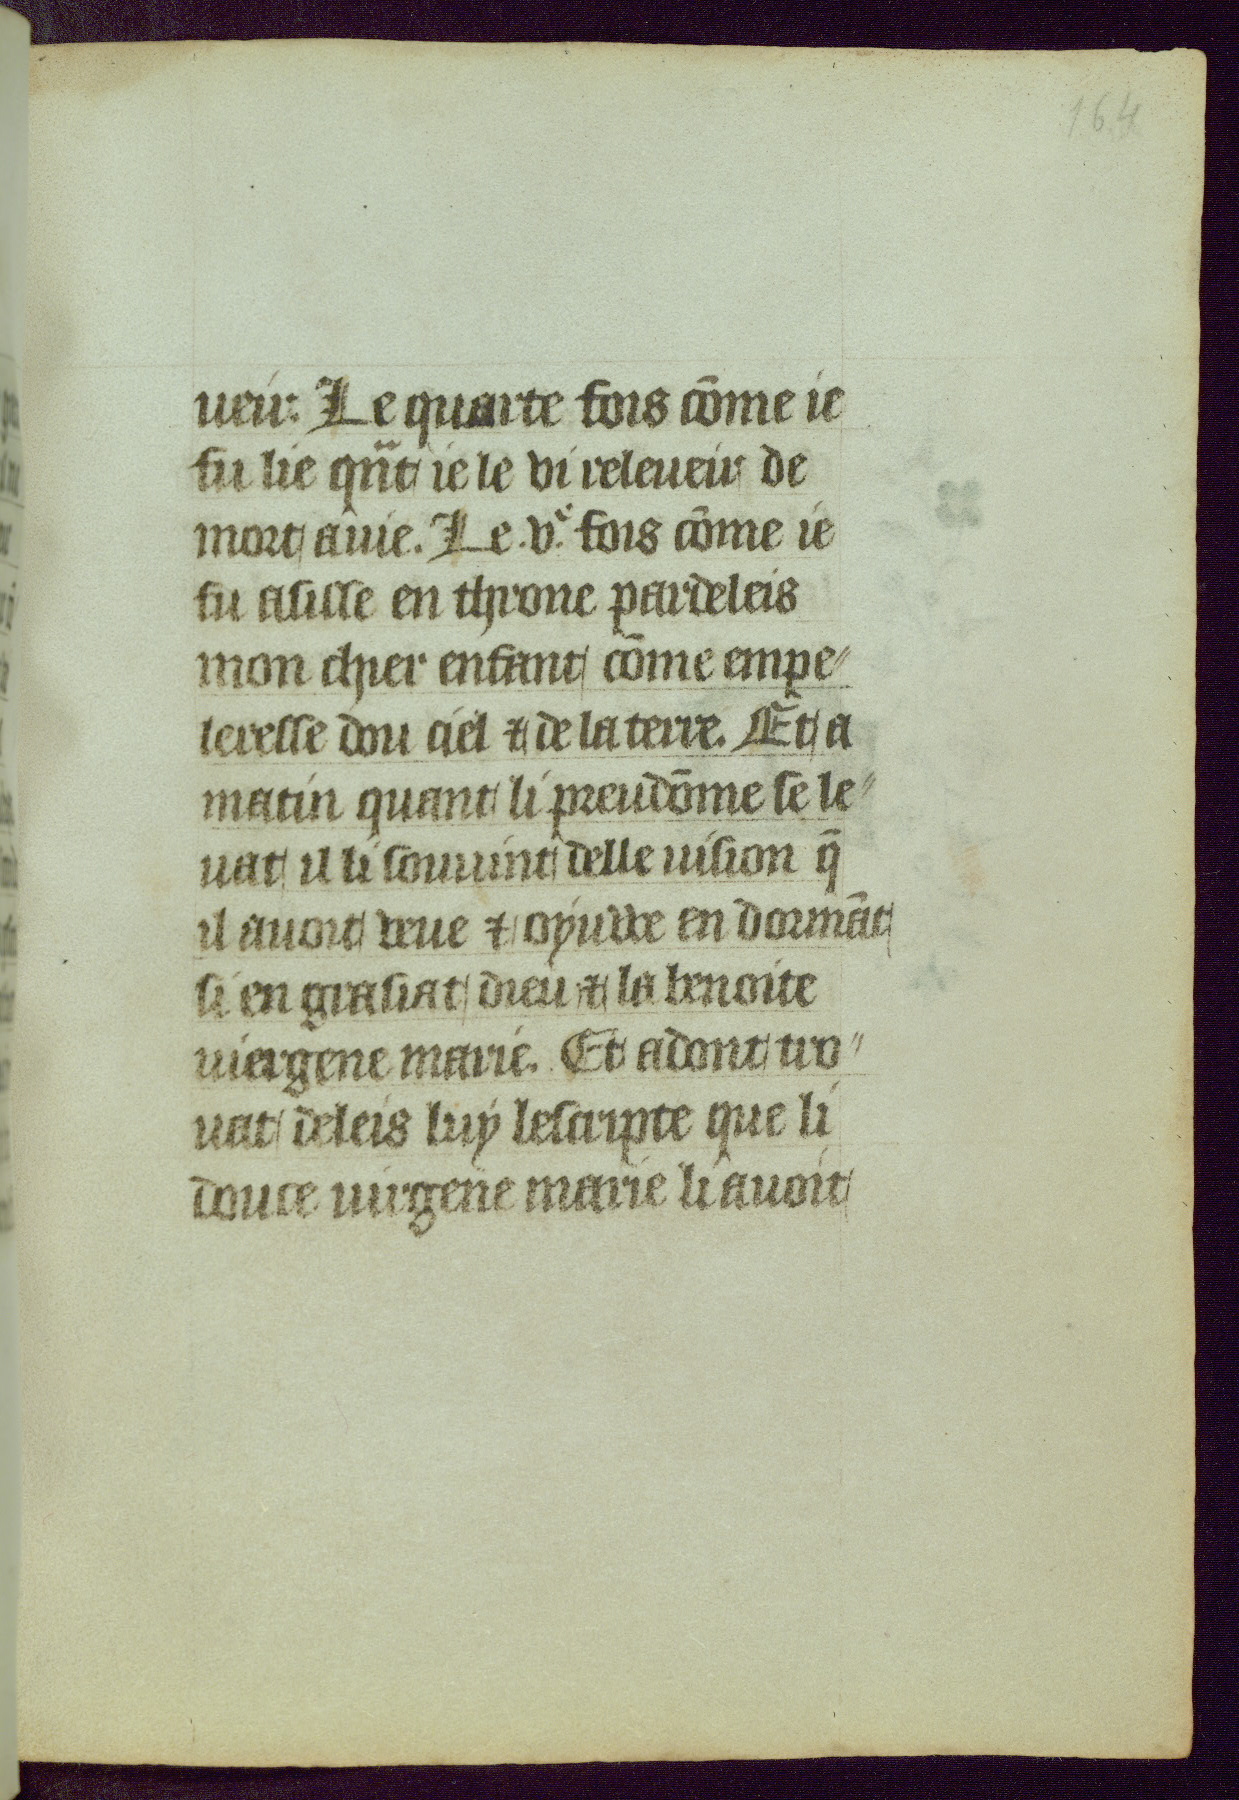 164
ueir. Le quarte fois cōme ie
fu lie qñt ie le vi releueir de
mort auie. Le .vͤ. fois cōme ie
fu asisse en throne pardeleis
mon chier enfant cōme empe〃
leresse dou ciel ⁊ de la terre. Et a
matin quant li preudōme se le〃
uat il li souuint delle uision q̄
il auoit veue ⁊ oÿudde en dormāt
si en grasiat dieu ⁊ la benoite
uiergene marie. Et adont tro〃
uat deleis luÿ lescripte que li
douce uirgene marie li auoit